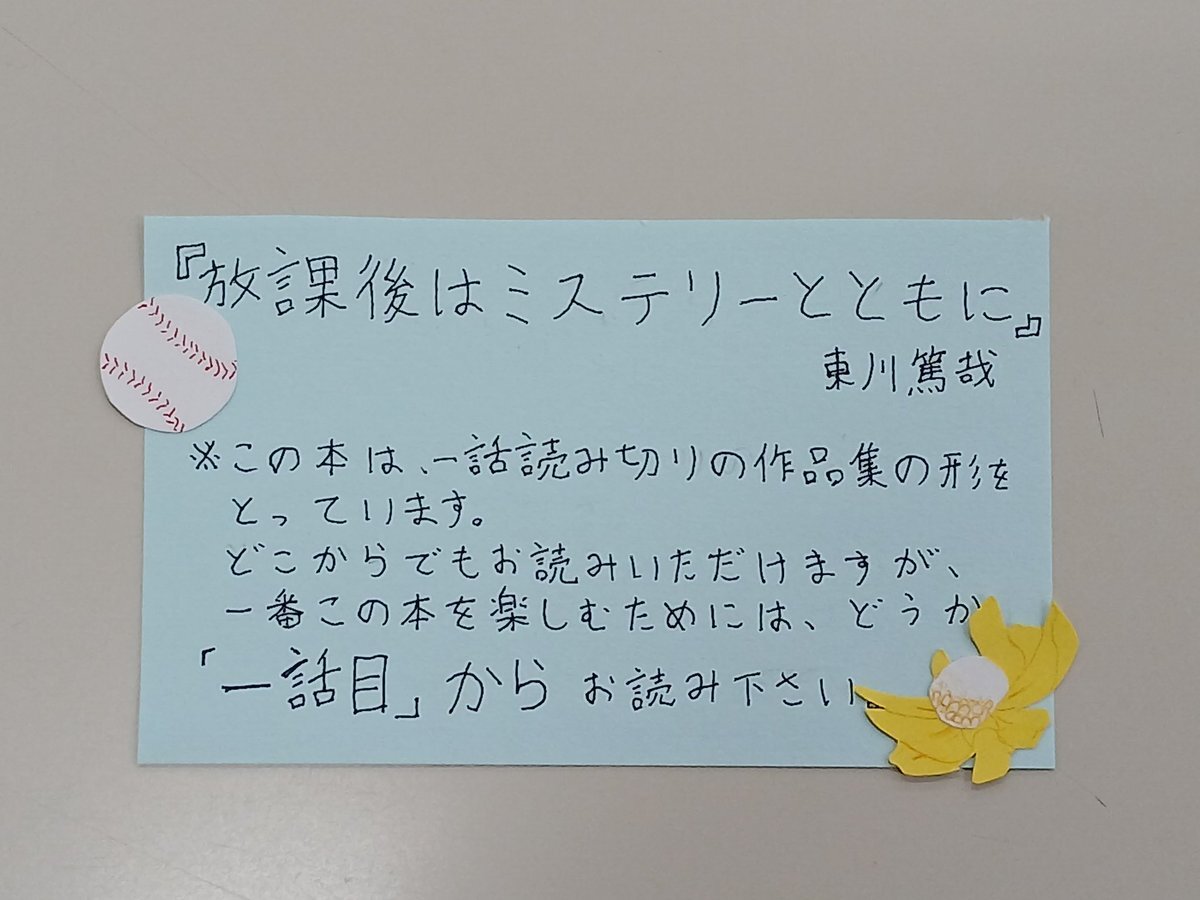 『放課後はミステリーとともに』
東川篤哉
※この本は、一話読み切りの作品集の形を
とっています。
どこからでもお読みいただけますが、
一番この本を楽しむためには、どうか
「一話目」からお読み下さい。